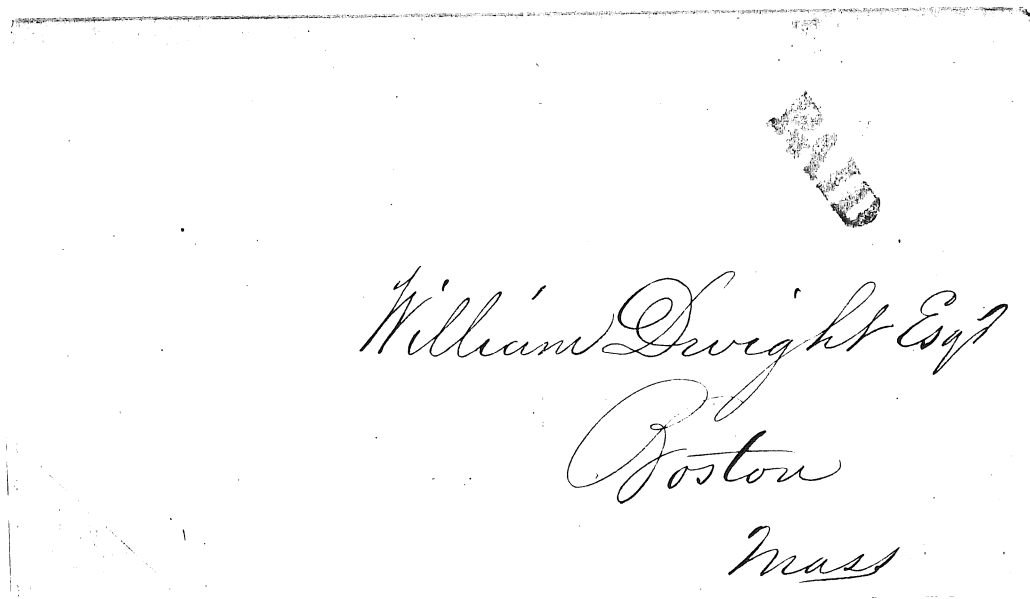 PAID
William Dwight Esqr
Boston
Mass